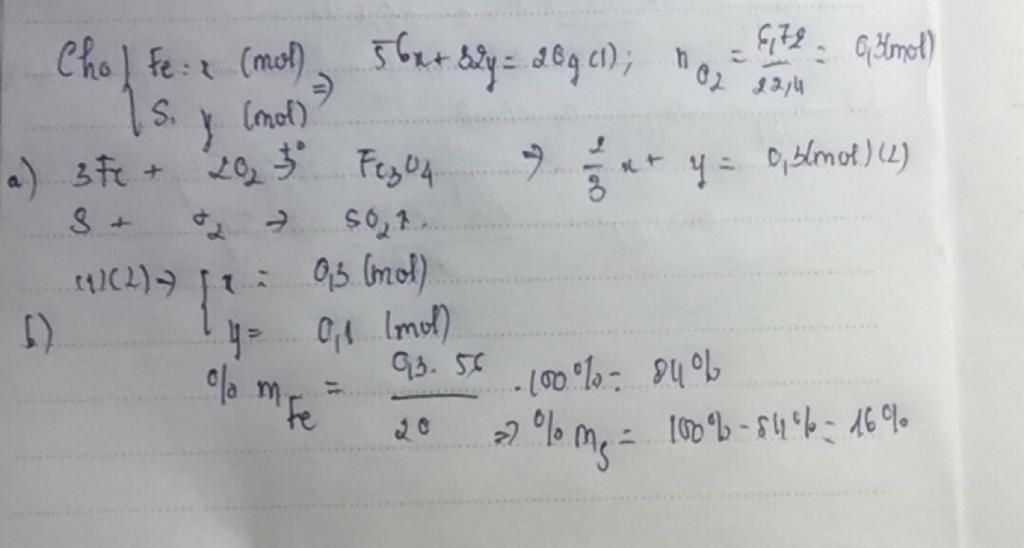 Cho { Fe: x (mol) => 56x + 32y = 20g (1); n O2 = 6,72/22,4 = 0,3(mol)
S: y (mol)
a) 3Fe + 2O2 t°→ Fe3O4 => 2/3 x + y = 0,3(mol) (2)
S + O2 → SO2↑.
(1)(2) → { x = 0,3 (mol)
b) y = 0,1 (mol)
% m Fe = 0,3. 56/20 .100% = 84%
=> % mS = 100% - 84% = 16%